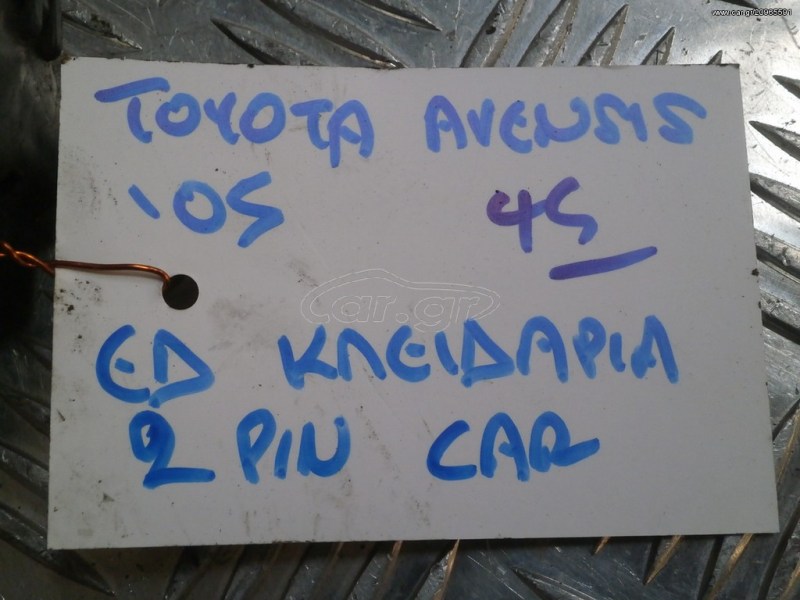 www.car.gr/20965591
TOYOTA AVENSIS
'05 45
car.gr
ΕΔ ΚΛΕΙΔΑΡΙΑ
2 PIN CAR